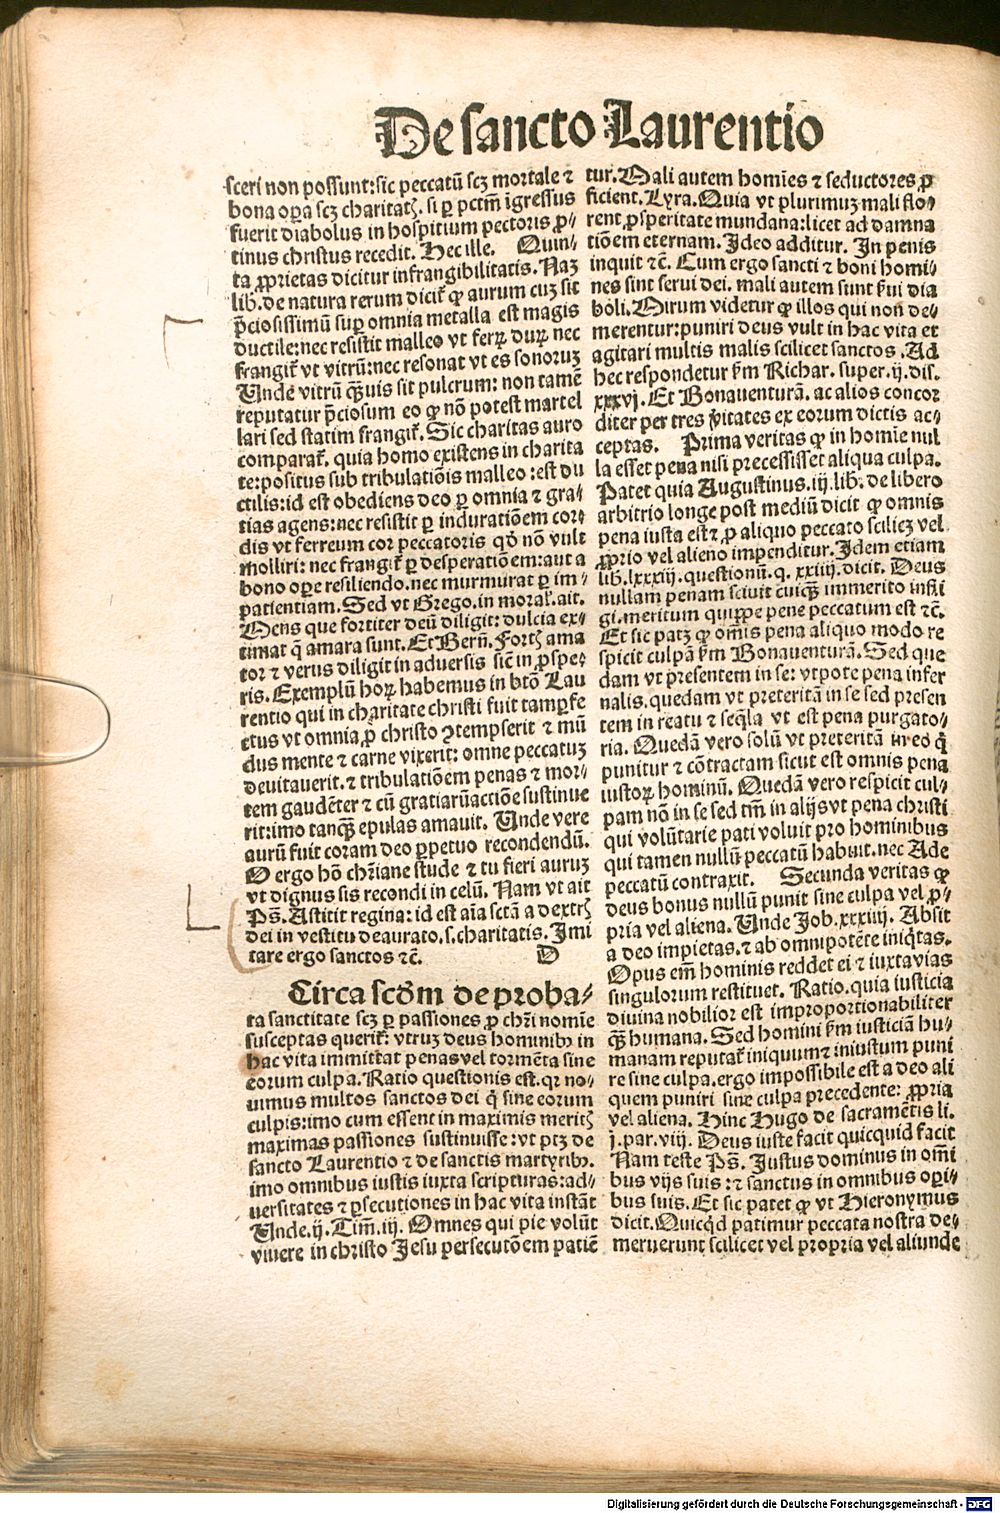 De sancto Laurentio
sceri non possunt: sic peccatū scꝫ mortale ⁊
bona oꝑa scꝫ charitatꝭ. si ꝑ pctm̄ īgressus
fuerit diabolus in hospitium pectoris ꝓ-
tinus christus recedit. Hec ille. Quin-
ta ꝓprietas dicitur infrangibilitatis. Naꝫ
lib. de natura rerum dicit̄ ꝙ aurum cuꝫ sit
p̄ciosissimū suꝑ omnia metalla est magis
ductile: nec resistit malleo vt ferꝝ durꝝ nec
frangit̄ vt vitrū: nec resonat vt es sonoruꝫ
Unde vitrū qͣ̄uis sit pulcrum: non tamē
reputatur p̄ciosum eo ꝙ nō potest martel
lari sed statim frangit̄. Sic charitas auro
comparat̄. quia homo existens in charita
te: positus sub tribulatiōis malleo: est du
ctilis: id est obediens deo ꝑ omnia ⁊ gra-
tias agens: nec resistit ꝑ induratiōem cor-
dis vt ferreum cor peccatoris qd̓ nō vult
molliri: nec frangit̄ ꝑ desperatiōem: aut a
bono oꝑe resiliendo. nec murmurat ꝑ im-
patientiam. Sed vt Grego. in moral̓. ait.
Mens que fortiter deū diligit: dulcia ex-
timat q̄ amara sunt. Et Bern̄. Fortꝭ ama
tor ⁊ verus diligit in aduersis sic̄ in ꝓspe-
ris. Exemplū hoꝝ habemus in btō Lau
rentio qui in charitate christi fuit tam ꝑfe
ctus vt omnia ꝓ christo ꝯtempserit ⁊ mū
dus mente ⁊ carne vixerit: omne peccatuꝫ
deuitauerit. ⁊ tribulatiōem penas ⁊ mor-
tem gaudēter ⁊ cū gratiarūactiōe sustinue
rit: imo tanqͣ̄ epulas amauit. Unde vere
aurū fuit coram deo ꝑpetuo recondendū.
O ergo hō chr̄iane stude ⁊ tu fieri auruꝫ
vt dignus sis recondi in celū. Nam vt ait
Ps̄. Astitit regina: id est aīa sctā a dextrꝭ
dei in vestitu deaurato. s. charitatis. Imi
tare ergo sanctos ⁊c̄. D
Circa scd̓m de proba-
ta sanctitate scꝫ ꝑ passiones ꝓ chr̄i nomīe
susceptas querit̄: vtruꝫ deus hominibꝰ in
hac vita immittat penas vel tormēta sine
eorum culpa. Ratio questionis est. qꝛ no-
uimus multos sanctos dei q̓ sine eorum
culpis: imo cum essent in maximis meritꝭ
maximas passiones sustinuisse: vt ptꝫ de
sancto Laurentio ⁊ de sanctis martyribꝰ.
imo omnibus iustis iuxta scripturas: ad-
uersitates ⁊ ꝑsecutiones in hac vita instāt
Unde. ij. Tim̄. iij. Omnes qui pie volūt
viuere in christo Jesu persecutōem patiē
tur. Mali autem homīes ⁊ seductores ꝓ
ficient. Lyra. Quia vt plurimuꝫ mali flo-
rent ꝓsperitate mundana: licet ad damna
tiōem eternam. Ideo additur. In penis
inquit ⁊c̄. Cum ergo sancti ⁊ boni homi-
nes sint serui dei. mali autem sunt ẜui dia
boli. Mirum videtur ꝙ illos qui non de-
merentur: puniri deus vult in hac vita et
agitari multis malis scilicet sanctos. Ad
hec respondetur ẜm Richar. super. ij. dis.
xxxvj. Et Bonauenturā. ac alios concor
diter per tres v̓itates ex eorum dictis ac-
ceptas. Prima veritas ꝙ in homīe nul
la esset pena nisi precessisset aliqua culpa.
Patet quia Augustinus. iij. lib. de libero
arbitrio longe post mediū dicit ꝙ omnis
pena iusta est ⁊ ꝓ aliquo peccato scilicꝫ vel
ꝓprio vel alieno impenditur. Idem etiam
lib. lxxxiij. questionū. q. xxiiij. dicit. Deus
nullam penam sciuit cuiqͣ̄ immerito infli
gi. meritum quippe pene peccatum est ⁊c̄.
Et sic patꝫ ꝙ om̄is pena aliquo modo re
spicit culpā ẜm Bonauenturā. Sed que
dam vt presentem in se: vtpote pena infer
nalis. quedam vt preteritā in se sed presen
tem in reatu ⁊ seq̄la vt est pena purgato-
ria. Quedā vero solū vt preteritā in eo q̓
punitur ⁊ cōtractam sicut est omnis pena
iustoꝝ hominū. Quedā vero respicit cul-
pam nō in se sed tm̄ in alijs vt pena christi
qui volūtarie pati voluit pro hominibus
qui tamen nullū peccatū habuit. nec Ade
peccatū contraxit. Secunda veritas ꝙ
deus bonus nullū punit sine culpa vel ꝓ-
pria vel aliena. Unde Job. xxxiiij. Absit
a deo impietas. ⁊ ab omnipotēte iniq̓tas.
Opus em̄ hominis reddet ei ⁊ iuxta vias
singulorum restituet. Ratio. quia iusticia
diuina nobilior est improportionabiliter
qͣ̄ humana. Sed homini ẜm iusticiā hu-
manam reputat̄ iniquum ⁊ iniustum puni
re sine culpa. ergo impossibile est a deo ali
quem puniri sine culpa precedente: ꝓpria
vel aliena. Hinc Hugo de sacramētis li.
j. par. viij. Deus iuste facit quicquid facit
Nam teste Ps̄. Justus dominus in om̄i
bus vijs suis: ⁊ sanctus in omnibus oꝑi-
bus suis. Et sic patet ꝙ vt Hieronymus
dicit. Quicq̓d patimur peccata nostra de-
meruerunt scilicet vel propria vel aliunde
Digitalisierung gefördert durch die Deutsche Forschungsgemeinschaft - DFG